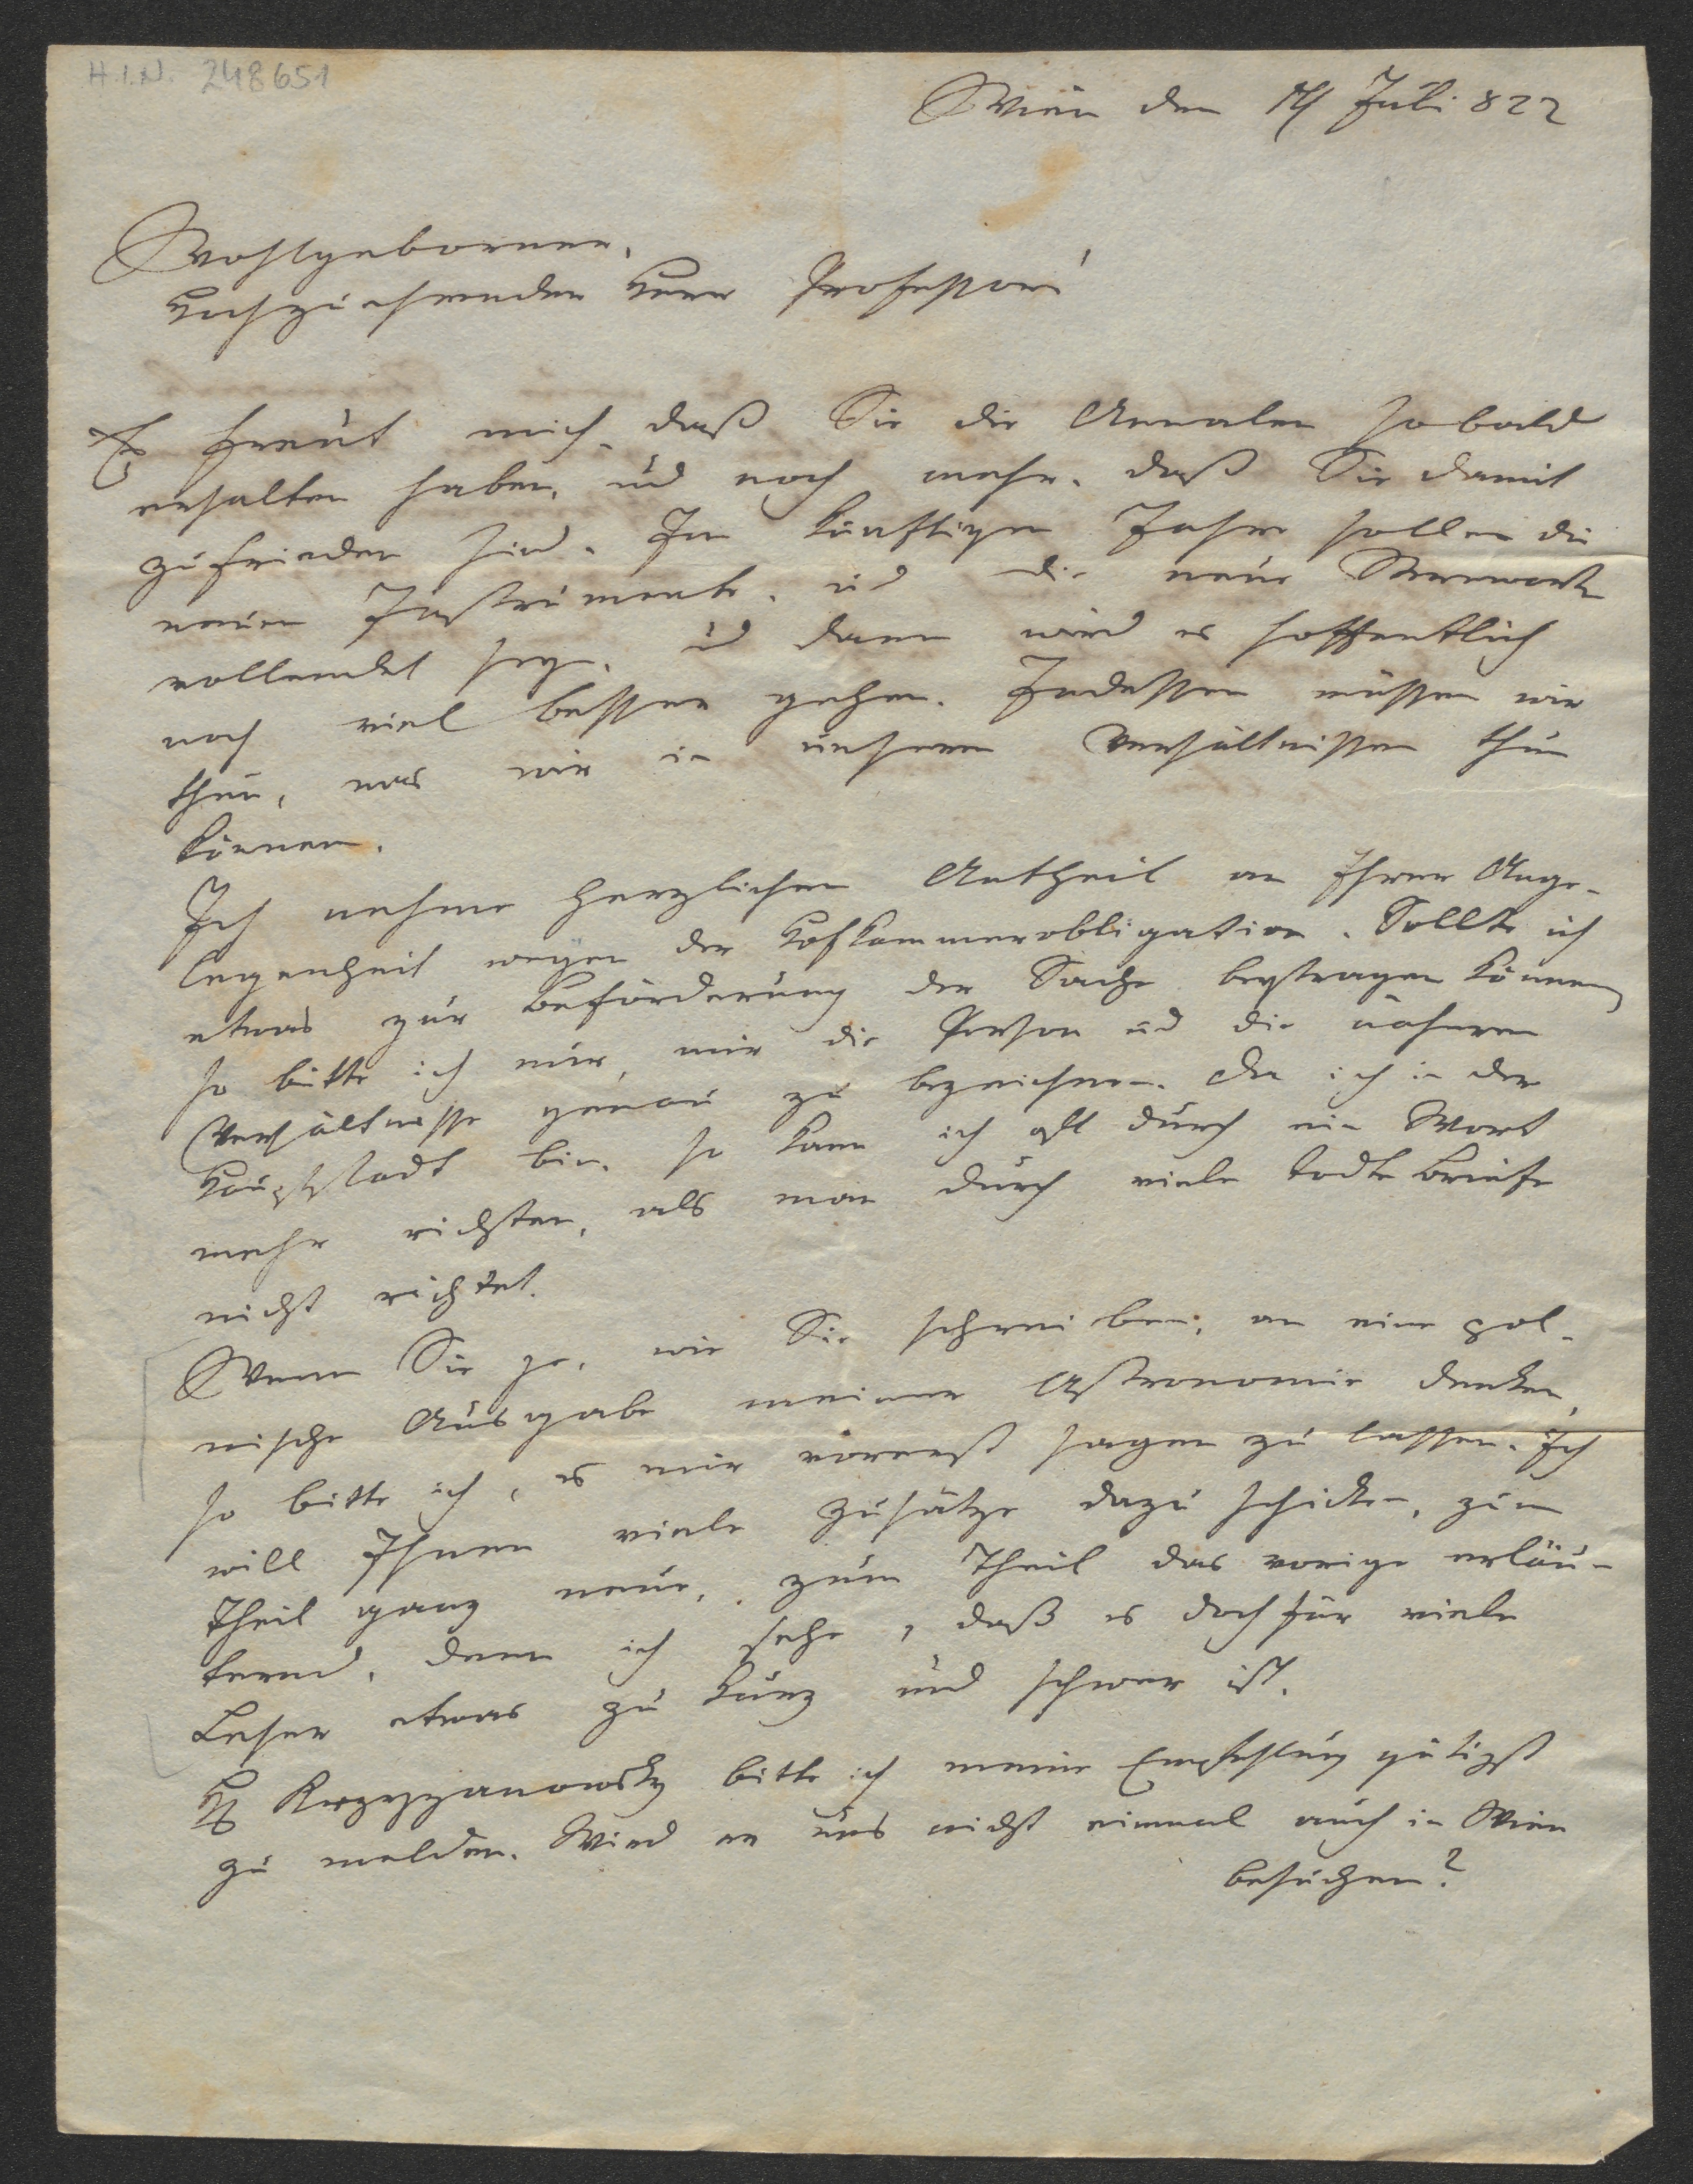 H.I.N. 248651
Wien den 14 Juli 822
Wohlgeborner,
Hochzuehrender Herr Professor!
Es freut mich, daß Sie die Annalen so bald
erhalten haben, und noch mehr, daß Sie damit
zufrieden sind. Im künftigen Jahre sollen die
neuen Instrumente, und die neue Sternwarte
vollendet seyn, und dann wird es hoffentlich
noch viel besser gehen. Indessen müssen wir
thun, was wir in unseren Verhältnissen thun
können.
Ich nehme herzlichen Antheil an Ihrer Ange-
legenheit wegen der Hofkammerobligation. Sollte ich
etwas zur Beförderung der Sache beytragen können,
so bitte ich nur, mir die Person und die näheren
Verhältnisse genau zu bezeichnen. Da ich in der
Hauptstadt bin, so kann ich oft durch ein Wort
mehr richten, als man durch viele todte Briefe
nicht richtet.
Wenn Sie ja, wie Sie schreiben, an eine pol-
nische Ausgabe meiner Astronomie denken,
so bitte ich, es mir vorerst sagen zu lassen. Ich
will Ihnen viele Zusätze dazu schicken, zum
Theil ganz neue, zum Theil das vorige erläu-
ternd, denn ich sehe, daß es doch für viele
Leser etwas zu kurz und schwer ist.
H Krzyzanowsky bitte ich meine Empfehlung gütigst
zu melden. Wird er uns nicht einmal auch in Wien
besuchen?